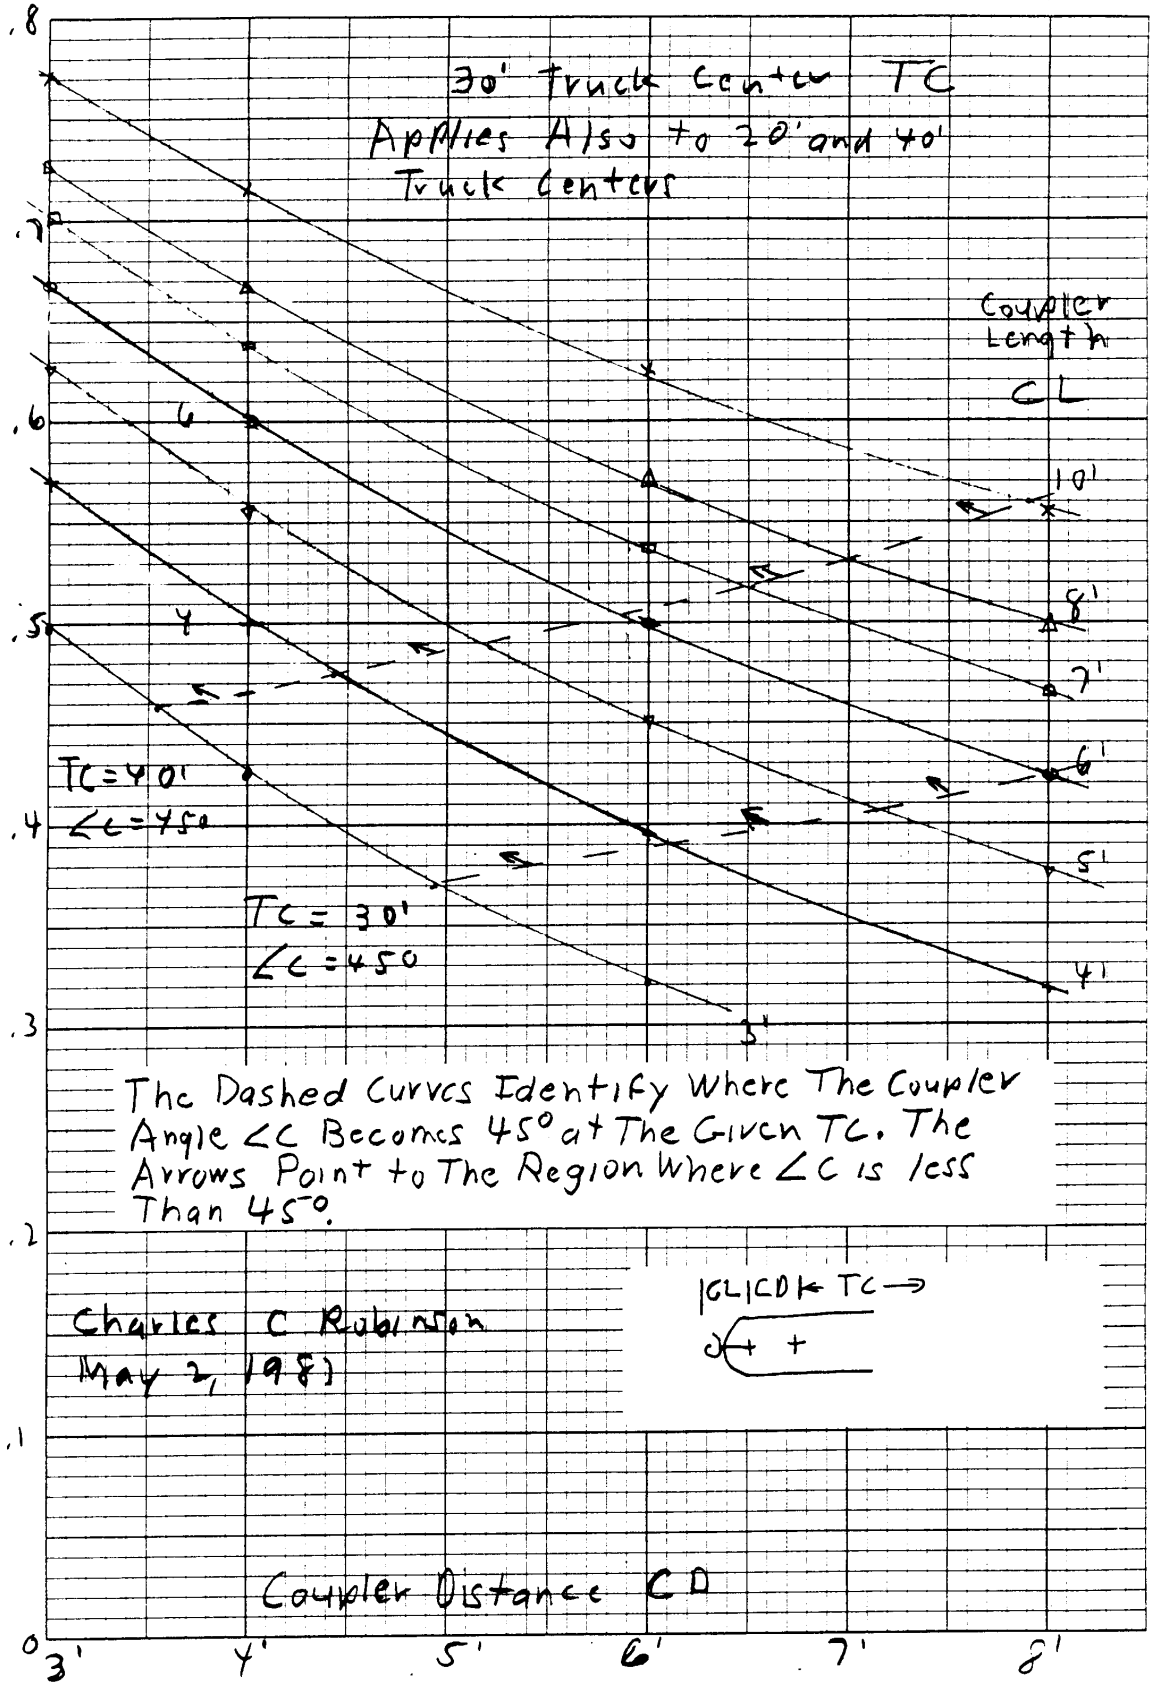 .8
30' Truck Center TC
Applies Also to 20' and 40'
Truck Centers
.7
Coupler
Length
CL
.6
6
10'
.5
4
8'
7'
TC = 40'
∠C = 45°
6'
.4
5'
TC = 30'
∠C = 45°
4'
.3
3'
The Dashed Curves Identify Where The Coupler
Angle ∠C Becomes 45° at The Given TC. The
Arrows Point to The Region Where ∠C is less
Than 45°.
.2
|CL|CD|← TC →
Charles C Robinson
May 2,
.1
Coupler Distance CD
0
3' 4' 5' 6' 7' 8'